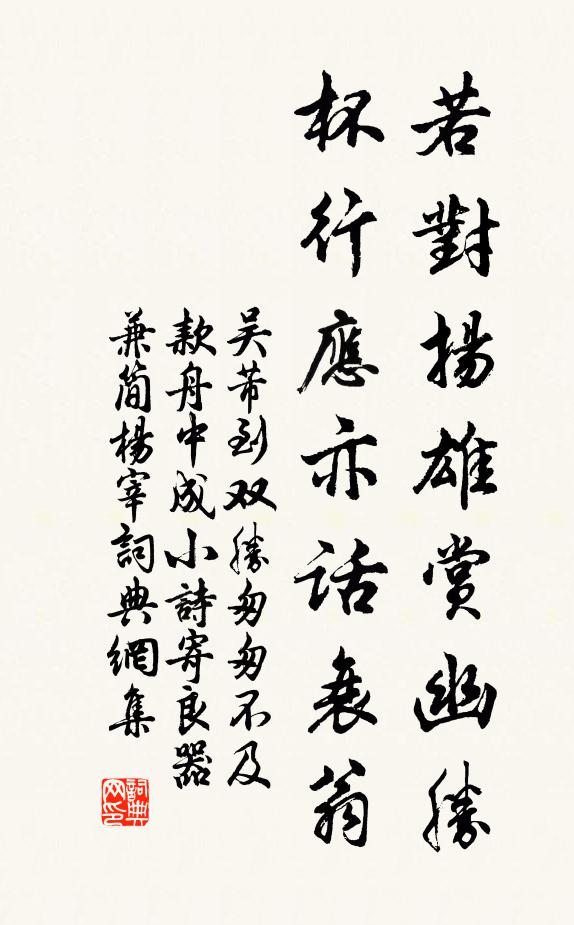 若對揚雄賞幽勝
杯行應亦話衰翁
吴芾到双勝匆匆不及
款舟中成小詩寄良器
兼简楊宰詞典網集
詞典网印